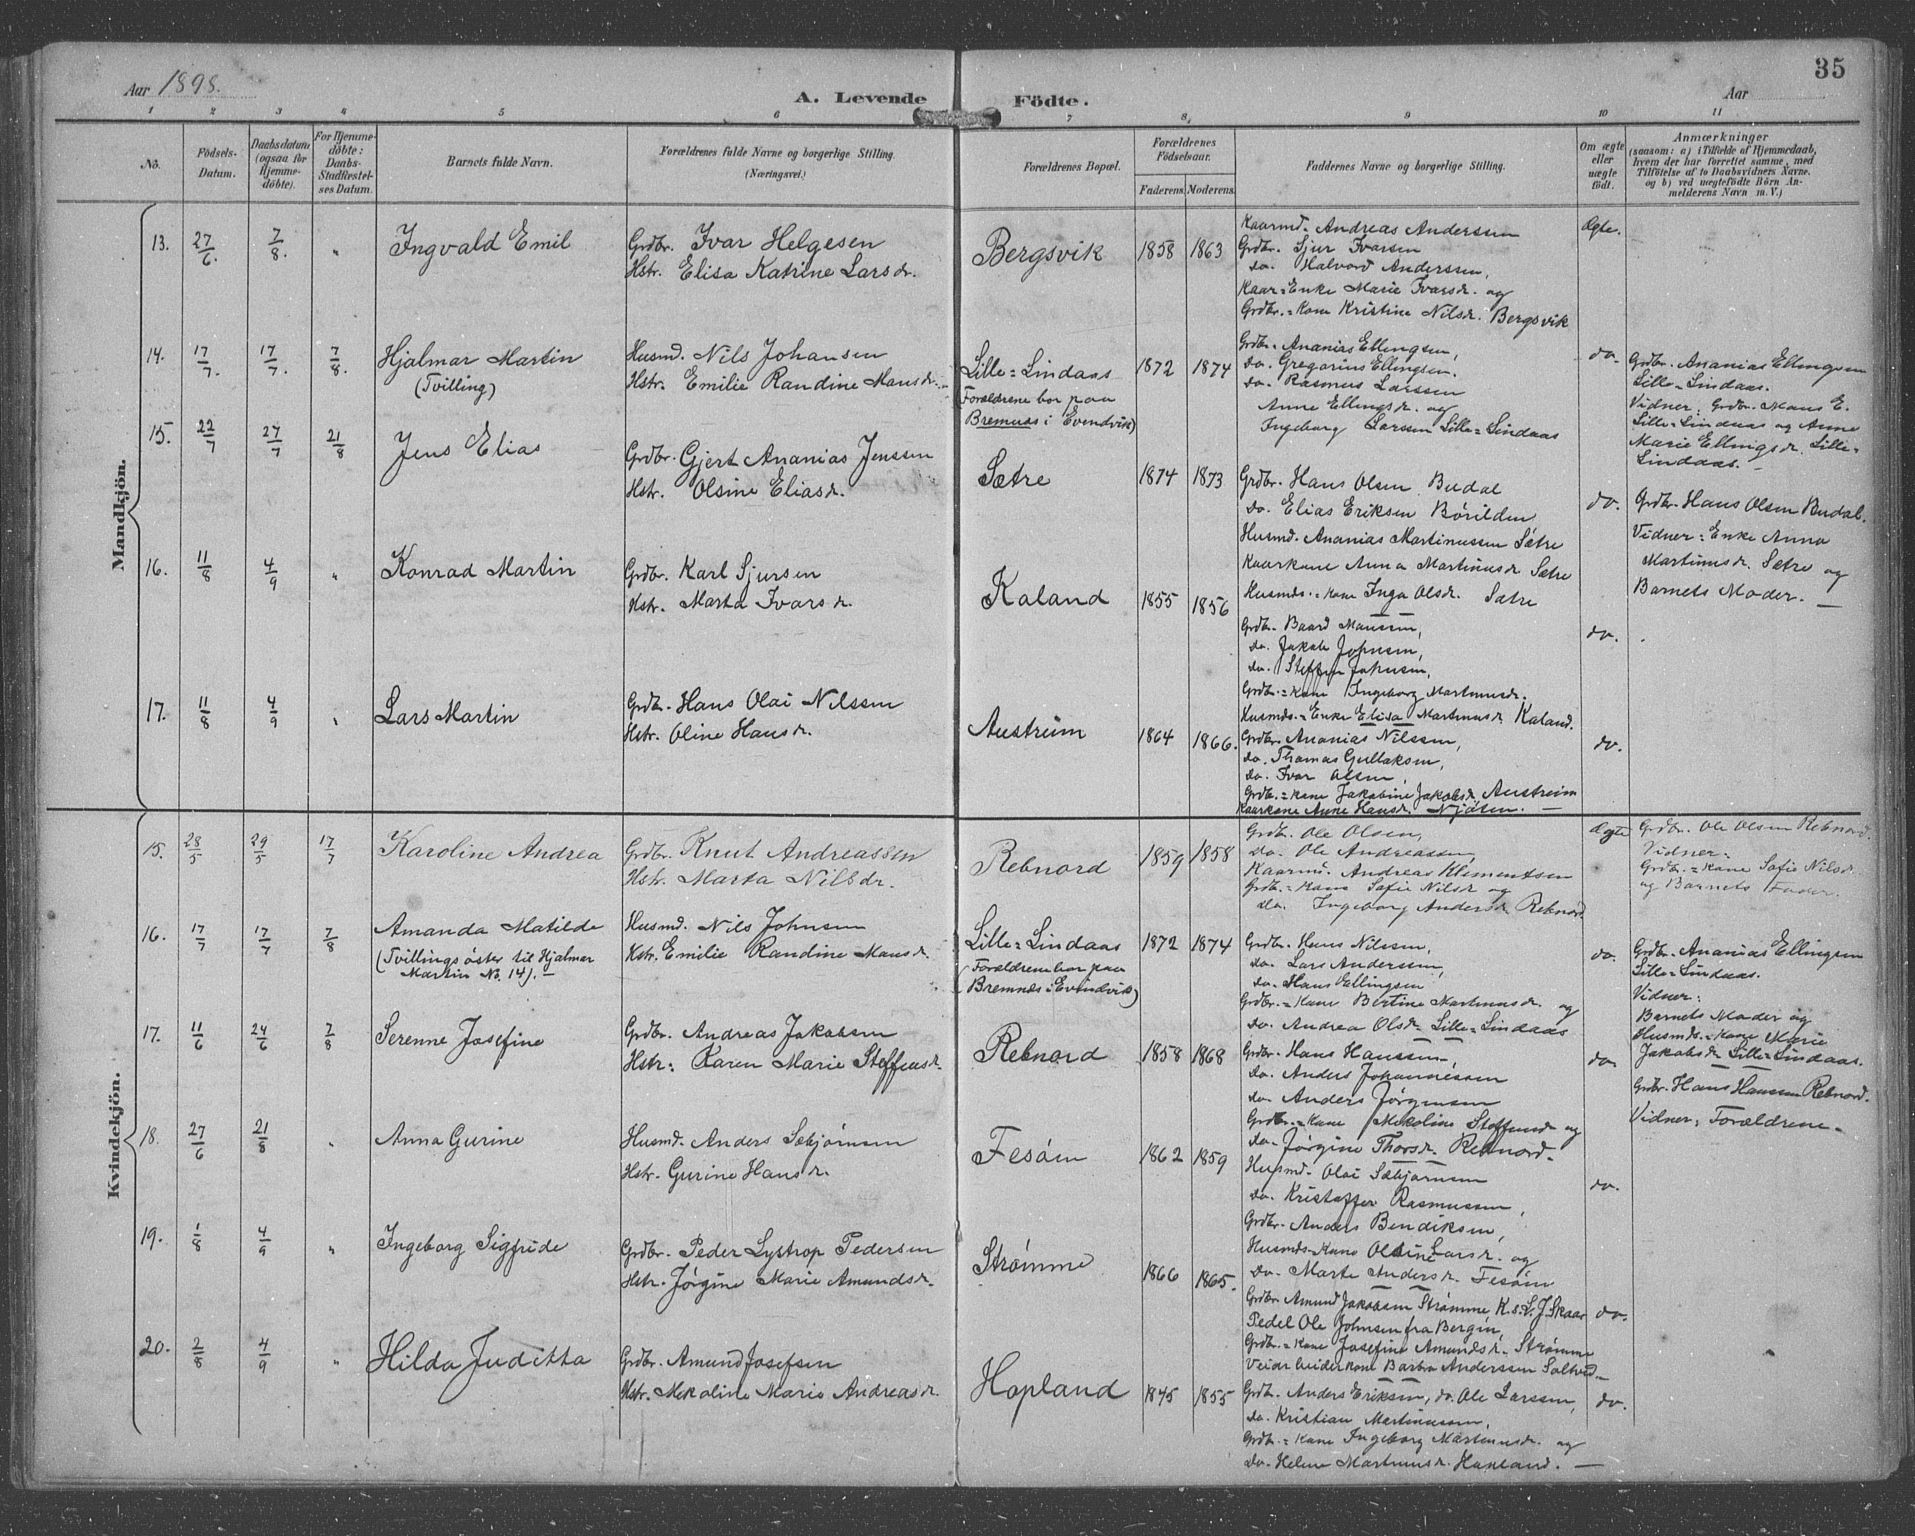 Aar 1898.
A. Levende Födte.
Aar
35
1 2 3 4 5 6 7 8. 9 10 11
No.
Födsels-Datum.
Daabsdatum (ogsaa for Hjemme-döbte).
For Hjemme-döbte: Daabs-Stadfæstel-ses Datum.
Barnets fulde Navn.
Forældrenes fulde Navne og borgerlige Stilling. (Næringsvei.)
Forældrenes Bopæl.
Forældrenes Födselsaar.
Faderens. Moderens.
Faddernes Navne og borgerlige Stilling.
Om ægte eller uægte födt.
Anmærkninger
(saasom: a) i Tilfælde af Hjemmedaab, hvem der har forrettet samme, med Tilföielse af to Daabsvidners Navne. og b) ved uægtefödte Börn An-melderens Navn m. V.)
Mandkjön.
13. 27/6. 7/8. " Ingvald Emil
Grdbr. Ivar Helgesen
Hstr. Elisa Katrine Larsdr.
Bergsvik 1858 1863
Kaarmd. Andreas Anderssen
Grdbr. Sjur Ivarsen
do. Halvord Anderssen,
Kaar=Enke Marie Ivarsdr. og
Grdbr.=Kone Kristine Nilsdr. Bergsvik
Ægte.
14. 17/7. 17/7. 7/8. Hjalmar Martin
(Tvilling)
Husmd. Nils Johansen
Hstr. Emilie Randine Mansdr.
Lille=Lindaas
(Forældrene bor paa
Bremnes i Evendvik)
1872 1874
Grdbr. Ananias Ellingsen,
do. Gregorius Ellingsen.
do. Rasmus Larssen
Anne Ellingsdr. og
Ingeborg Larssen Lille=Lindaas
do.
Grdbr. Ananias Ellingsen
Lille=Lindaas.
Vidner: Grdbr. Mons E.
Lille=Lindaas og Anne
Marie Ellingsdr. Lille-
Lindaas.
15. 22/7 27/7 21/8 Jens Elias
Grdbr. Gjert Ananias Jenssen
Hstr. Olsine Eliasdr.
Sætre 1874 1873
Grdbr. Hans Olsen Budal
do. Elias Eriksen Börilden
Husmd. Ananias Martinussen Sætre
Kaarkone Anna Martinusdr. Sætre
Husmds.=Kone Inga Olsdr. Sætre
do.
Grdbr. Hans Olsen Budal.
Vidner: Enke Anna
Martinusdr. Sætre og
Barnets Moder. —
16. 11/8 4/9 " Konrad Martin
Grdbr. Karl Sjursen
Hstr. Marta Ivarsdr.
Kaland 1855 1856
Grdbr. Baard Monssen,
do. Jakob Johnsen,
do. Steffen Johnsen,
Grdbr.=Kone Ingeborg Martinusdr.
Husmds.=Enke Elisa Martinusdr. Kaland.
do.
17. 11/8 4/9 " Lars Martin
Grdbr. Hans Olai Nilssen
Hstr. Oline Hansdr.
Austreim 1864 1866.
Grdbr. Ananias Nilssen,
do. Thomas Gullaksen,
do. Ivar Olsen,
Grdbr.=Kone Jakobine Jakobsdr. Austreim
Kaarkone Anne Hansdr. Njöten. —
do.
Kvindekjön.
15. 28/5 29/5 17/7 Karoline Andrea
Grdbr. Knut Andreassen
Hstr. Marta Nilsdr.
Rebnord 1859 1858
Grdbr. Ole Olsen,
do. Ole Andreassen,
Kaarmd. Andreas Klementsen
Grdbr.=Kone Sofie Nilsdr. og
do. Ingeborg Andersdr. Rebnord.
Ægte
Grdbr. Ole Olsen Rebnord.
Vidner:
Grdbr.=Kone Sofie Nilsdr.
og Barnets Fader.
16. 17/7 17/7 7/8 Amanda Matilde
(Tvillingsöster til Hjalmar
Martin No. 14). —
Husmd. Nils Johnsen
Hstr. Emilie Randine Mansdr.
Lille=Lindaas
(Forældrene bor paa
Bremnes i Evindvik)
1872 1874
Grdbr. Hans Nilssen,
do. Lars Anderssen,
do. Hans Ellingsen
Grdbr.=Kone Bertine Martinusdr. og
do. Andrea Olsdr. Lille=Lindaas
do.
Grdbr. Ananias Ellingsen
Lille=Lindaas.
Vidner:
Barnets Moder og
Husmds.=Kone Marie
Jakobsdr. Lille=Lindaas.
17. 11/6 24/6 7/8 Serenne Josefine
Grdbr. Andreas Jakobsen
Hstr: Karen Marie Steffensdr.
Rebnord 1858 1868
Grdbr. Hans Hanssen,
do. Anders Johannessen
do. Anders Jörgensen
Grdbr.=Kone Mekoline Steffensdr. og
do. Jörgine Thorsdr. Rebnord.
do.
Grdbr. Hans Hanssen Rebnord.
Vidner, Forældrene.
18. 27/6 21/8 " Anna Gurine
Husmd. Anders Sæbjörnsen
Hstr. Gurine Hansdr.
Fesöin 1862 1859
Husmd. Olai Sæbjörnsen
do. Kristoffer Rasmussen,
Grdbr. Anders Bendiksen,
Husmds.=Kone Olsine Larsdr. og
do. Marte Andersdr. Fesöin
do.
19. 1/8 4/9 " Ingeborg Sigfride
Grdbr. Peder Lystrop Pedersen
Hstr. Jörgine Marie Amundsdr.
Strömme 1866 1865.
Grdbr. Amund Jakobsen Strömme, K.s. L. J. Skaar
Pedel Ole Johnsen fra Bergen,
Grdbr.=Kone Josefine Amundsdr. Strömme
Veiarbeiderkone Barbra Anderssen
do.
20. 2/8 4/9 " Hilda Juditta
Grdbr. Amund Josefsen
Hstr. Mekoline Marie Andreasdr.
Hopland 1845 1855
Grdbr. Anders Eriksen, do. Ole Larssen,
do. Kristian Martinussen,
Grdbr.=Kone Ingeborg Martinusdr. og
do. Helene Martinusdr. Hopland. —
do.